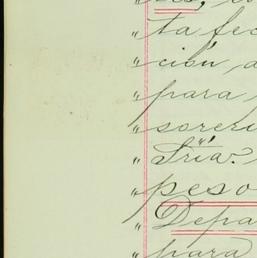 " ta fec
" ción, a
" para
" soreri
" Sria.
" peso
" Depa
" para